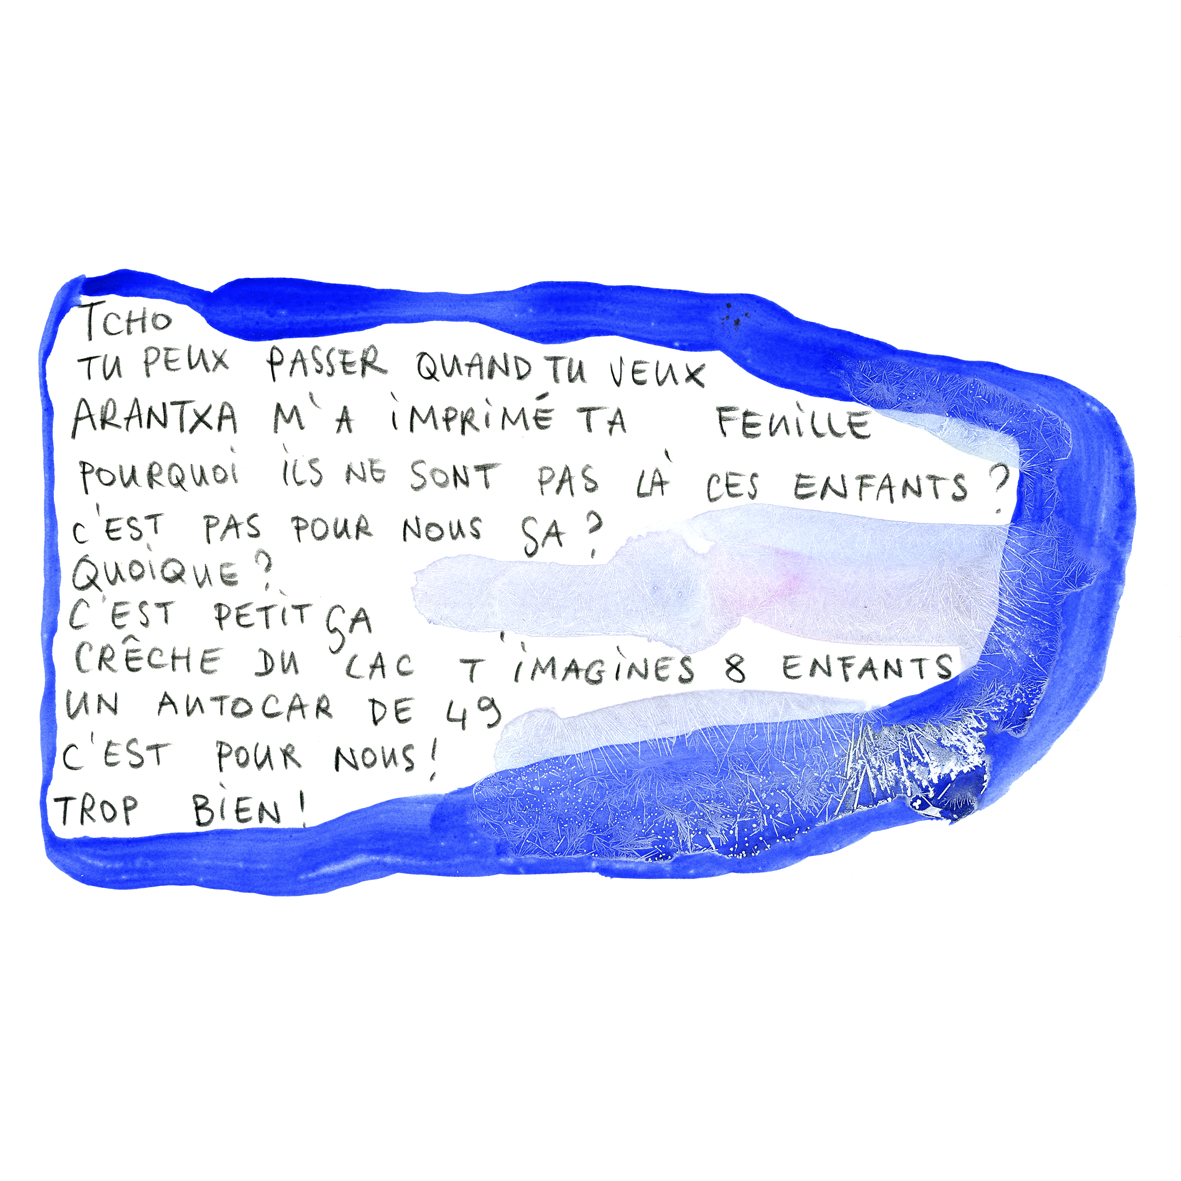 TCHO
TU PEUX PASSER QUAND TU VEUX
ARANTXA M'A IMPRIMÉ TA FEUILLE
POURQUOI ILS NE SONT PAS LÀ CES ENFANTS ?
C'EST PAS POUR NOUS ÇA ?
QUOIQUE ?
C'EST PETIT ÇA
CRÊCHE DU LAC T'IMAGINES 8 ENFANTS
UN AUTOCAR DE 49
C'EST POUR NOUS !
TROP BIEN !